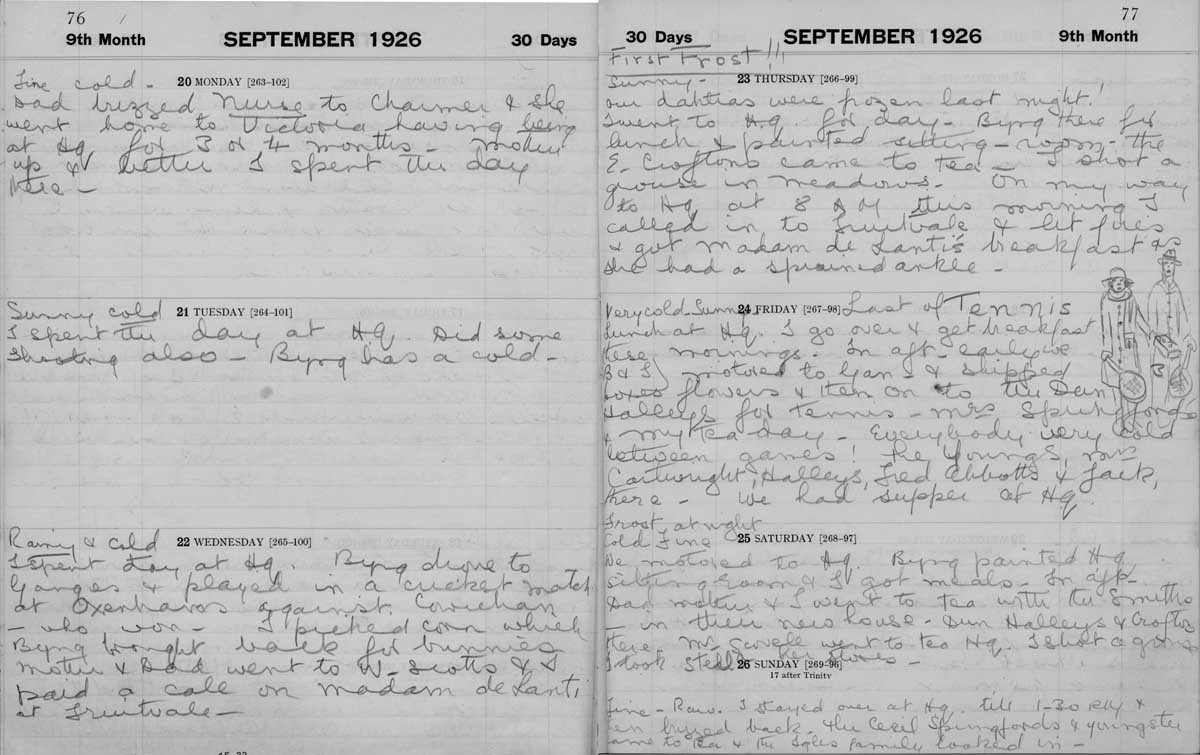 76
9th Month SEPTEMBER 1926 30 Days
Fine cold - 20 MONDAY [263-102]
Dad brizzed Nurse to Charmer & she
went home to Victoria having being
at Hq for 3 or 4 months - mother
up & better I spent the day
here -
Sunny cold 21 TUESDAY [264-101]
I spent the day at HQ. Did some
shooting also - Byng has a cold -
Rainy & cold 22 WEDNESDAY [265-100]
I spent day at Hq Byng drove to
Ganges & played in a cricket match
at Oxenhams against Cowichan
- who won - I picked corn which
Byng brought back for bunnies
mother & Dad went to W. Scotts & I
paid a call on madam de Lanti
at Fruitvale -
77
30 Days SEPTEMBER 1926 9th Month
First Frost !!!
Sunny - 23 THURSDAY [266-99]
our dahlias were frozen last night!
I went to HQ for day - Byng there for
lunch & painted sitting-room - the
E. Croftons came to tea - I shot a
grouse in meadows. On my way
to Hq at 8 AM this morning I
called in to Fruitvale & lit fires
& got madam de Lanti's breakfast as
she had a sprained ankle -
Very cold. Sunny 24 FRIDAY [267-98] Last of Tennis
Lunch at Hq. I go over & get breakfast
these mornings. In aft. early we
B & I motored to Gan - & shipped
boxes flowers & then on to the Dun
Halleys for tennis - mrs Springfords
& my tea day - Everybody very cold
between games! The Youngs, mrs
Cartwright, Halleys, Fred Abbotts & Jack,
there - We had supper at Hq
Frost at night
Cold Fine 25 SATURDAY [268-97]
We motored to Hq. Byng painted Hq
sitting room & I got meals. In aft-
Dad mother & I went to tea with the Smiths
- in their new house - Dun Halleys & Croftons
there. mr went to tea Hq. I shot a grouse
I took -
26 SUNDAY [269-96]
17 after Trinity
Fine - Raw. I stayed over at Hq till 1-30 &
back. the Cecil Springfords & youngster
came to tea & the family looked in -